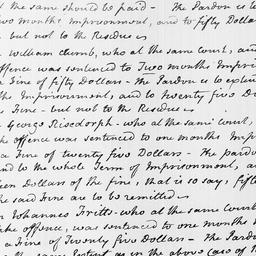 the same should be paid — The Pardon is to
two months Imprisonment, and to fifty Dollar
but not to the Residue
William Chumb, who at the same Court, and
offence was sentenced to Two months Impri
a Fine of fifty Dollars — The Pardon is to exten
the Imprisonment, and to twenty five Do
Fine — but not to the Residue
George Risedorph — who at the same Court,
like offence was sentenced to one months Imp
a Fine of twenty five Dollars — The pardo
end to the whole Term of Imprisonment, an
een Dollars of the fine, that is so say, fifte
the said Fine are to be remitted
Johannes Fritts — who at the same Court
like offence, was sentenced to one months I
a Fine of Twenty five Dollars — The Pardo
the same Extent as in the above case of